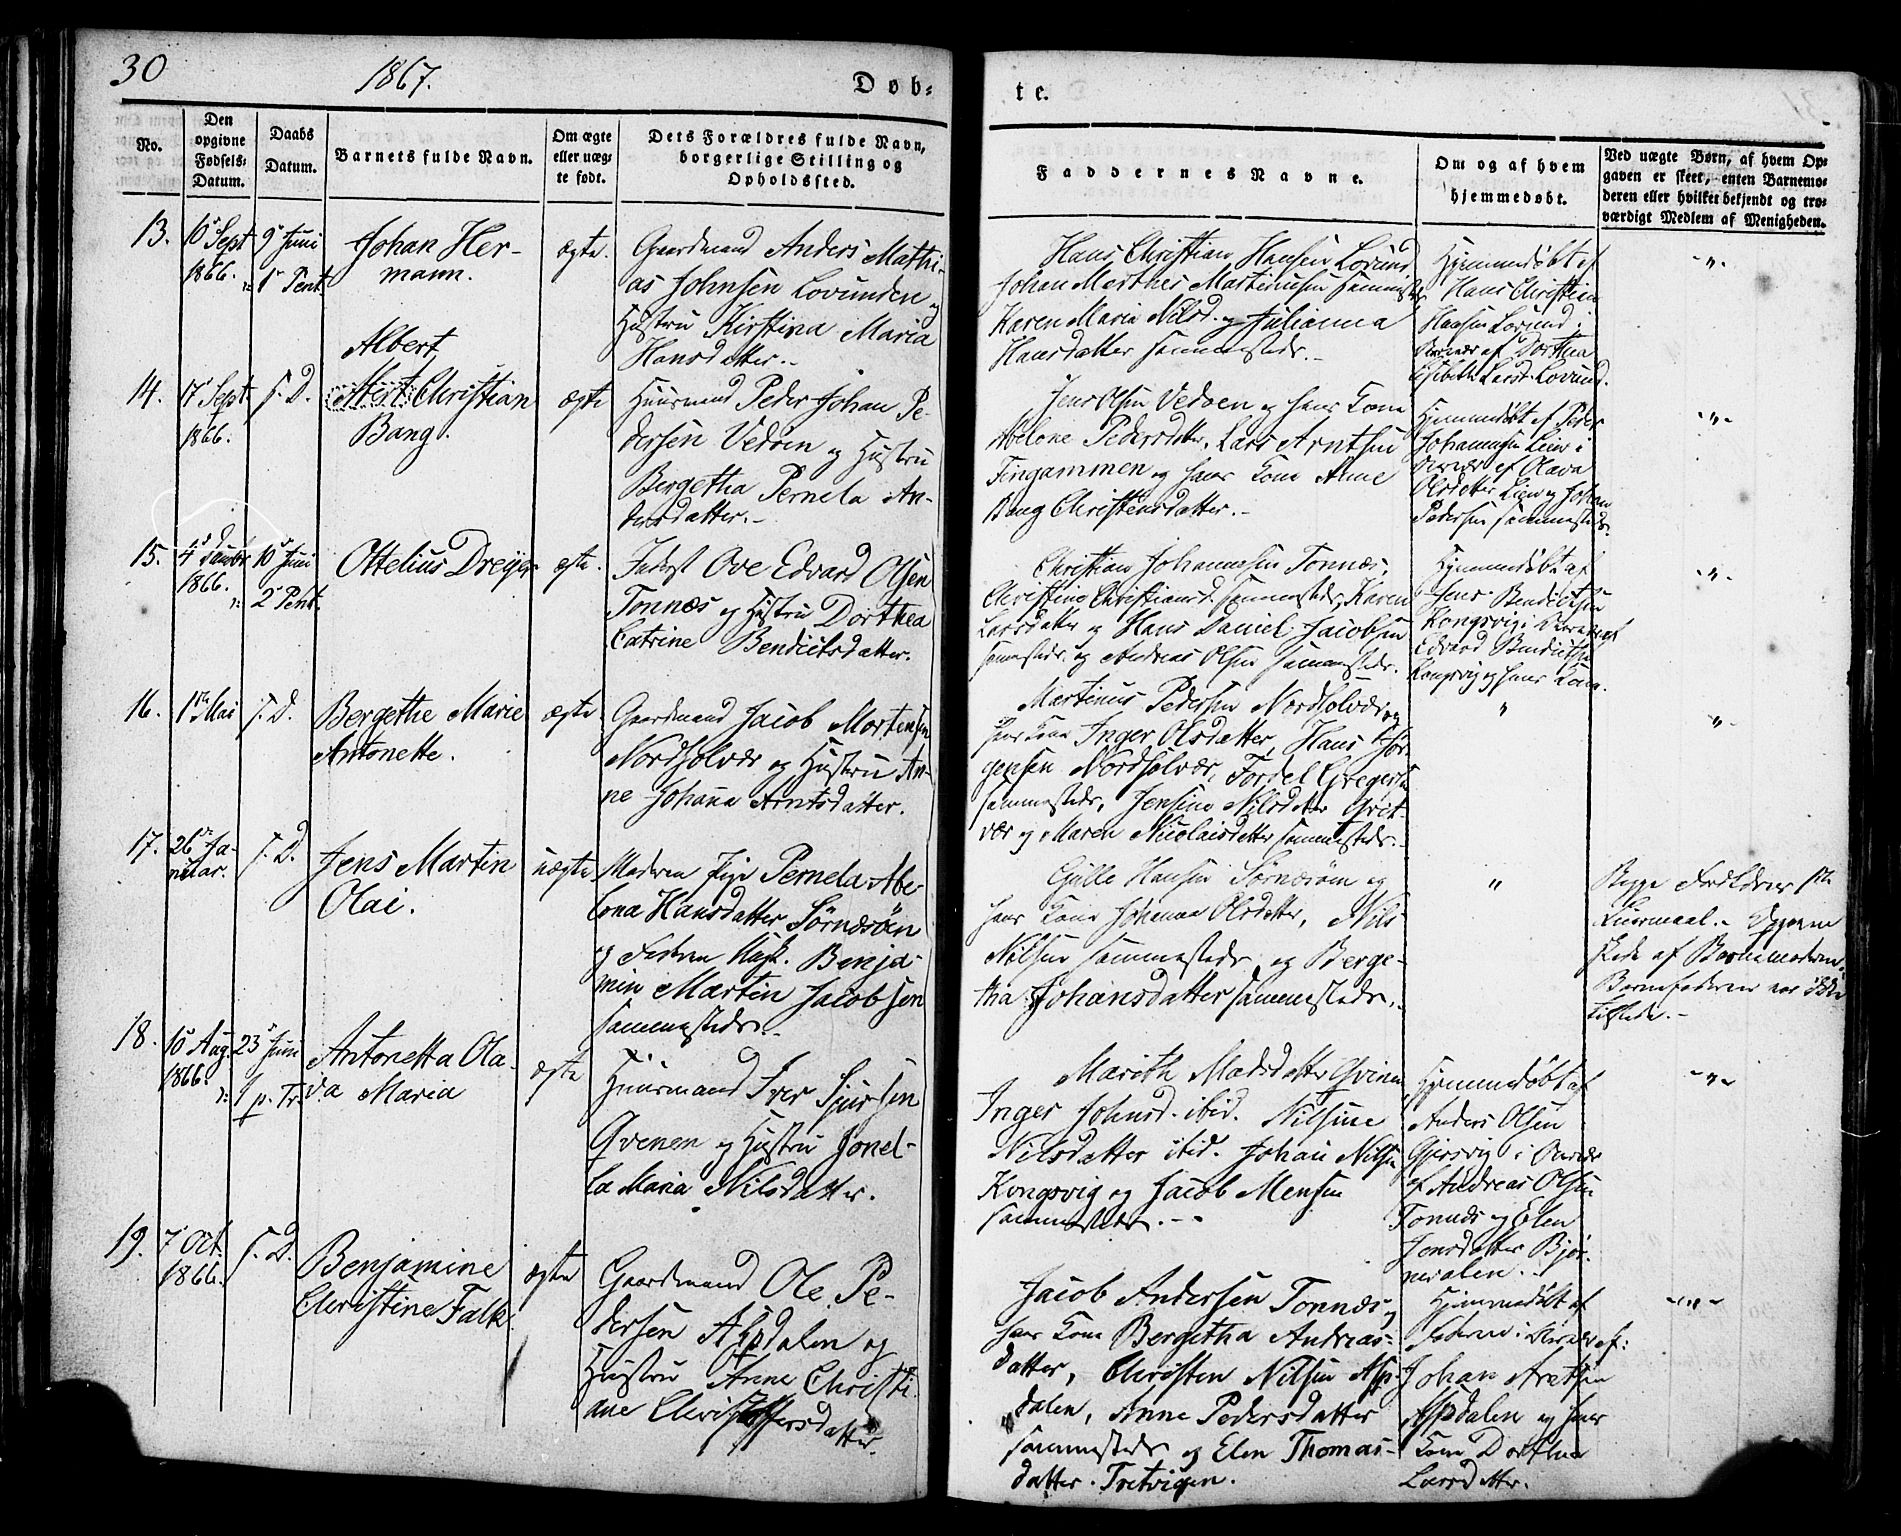 30
1867.
Døb=
te.
No.
Den
opgivne
Fødsels=
Datum.
Daabs
Datum.
Barnets fulde Navn.
Om ægte
eller uæg=
te født.
Dets Forældres fulde Navn,
borgerlige Stilling og
Opholdssted.
Faddernes Navne.
Om og af hvem
hjemmedøbt.
Ved uægte Børn, af hvem Op=
gaven er skeet, enten Barnemo=
deren eller hvilket bekjendt og tro=
værdigt Medlem af Menigheden.
13.
10 Sept
1866.
9 Juni
1 Pent.
Johan Her-
mann.
ægte.
Gaardmand Anders Mathi-
as Johnsen Lovunden og
Hustru Kirstina Maria
Hansdatter.
Hans Christian Hansen Lovund
Johan Marthes Martinusen sammesteds
Karen Maria Nilsd. og Julianna
Hansdatter sammesteds.
Hjemmedøbt af
Hans Christian
Hansen Lovund i
Nærvær af Dorthea
Elisabeth Larsd. Lovund.
"
14.
17 Sept
1866.
s. D.
Albert
Albert Christian
Bang.
ægte
Huusmand Peder Johan Pe-
dersen Vedøen og Hustru
Bergetha Pernela An-
dersdatter.
Jens Olsen Vedøen og hans Kone
Abelone Pedersdatter, Lars Arntsen
Tingammen og hans Kone Anne
Bang Christensdatter.
Hjemmedøbt af Peder
Johannesen Lien i
Nærvær af Olava
Olsdatter Lien og Johan
Pedersen sammesteds.
"
15.
4 Decbr
1866.
10 Juni
2 Pent.
Ottelius Dreyer
ægte.
Inderst Ove Edvard Olsen
Tonnæs og Hustru Dorthea
Catrine Bendictsdatter.
Christian Johannesen Tonnæs,
Christine Christiansd. sammesteds, Karen
Larsdatter og Hans Daniel Jacobsen
sammesteds og Andreas Olsen sammesteds.
Hjemmedøbt af
Jens Bendictsen
Kongsvig i Nærvær af
Edvard Bendictsen
Kongsvig og hans Kone.
"
16.
1ste Mai
s. D.
Bergethe Marie
Antonette.
ægte.
Gaardmand Jacob Mortensen
Nordsolvær og Hustru An-
ne Johana Arntsdatter.
Martinus Pedersen Nordsolvær og
hans Kone Inger Olsdatter, Hans Jør-
gensen Nordsolvær, Fordel Gregersen
sammesteds, Jensine Nilsdatter
vær og Maren Nicolaisdatter sammesteds.
"
"
17.
26de Ja-
nuar.
s. D.
Jens Martin
Olai.
uægte
Moderen Pige Pernela Abe-
lona Hansdatter Sørnæsøen
og Faderen Ungk. Benja-
min Martin Jacobsen
sammesteds.
Gulle Hansen Sørnæsøen og
hans Kone Johanna Olsdatter, Nils
Nilsen sammesteds og Berge-
tha Johansdatter sammesteds.
"
Begge Forældres 1ste
Leiermaal. Opgaven
skede af Barnemoderen.
Barnefaderen var ikke
tilstede.
18.
10 Aug.
1866.
23 Juni
1 p. Tr.
Antonetta Ola-
va Maria
ægte
Huusmand Iver Sjursen
Qvenen og Hustru Jonel-
la Maria Nilsdatter.
Marith Madsdatter Qvinen,
Inger Johnsd. ibid. Nilsine
Nilsdatter ibid. Johan Nilsen
Kongsvig og Jacob Mensen
sammesteds.
Hjemmedøbt af
Anders Olsen
Gjersvig i Nærvær
af Andreas Olsen
Tonnæs og Elen
Jensdatter Bjør-
nerdalen.
"
19.
7 Oct.
1866.
s. D.
Benjamine
Christine Falk
ægte
Gaardmand Ole Pe-
dersen Aspdalen og
Hustru Anne Christi-
ane Christoffersdatter.
Jacob Andersen Tonnæs og
hans Kone Bergetha Andreas-
datter, Christen Nilsen Asp-
dalen, Anne Pedersdatter
sammesteds og Elen Thomas-
datter Tretvigen.
Hjemmedøbt af
Faderen i Nærvær af:
Johan Arntsen
Aspdalen og hans
Kone Dorthea
Larsdatter.
"